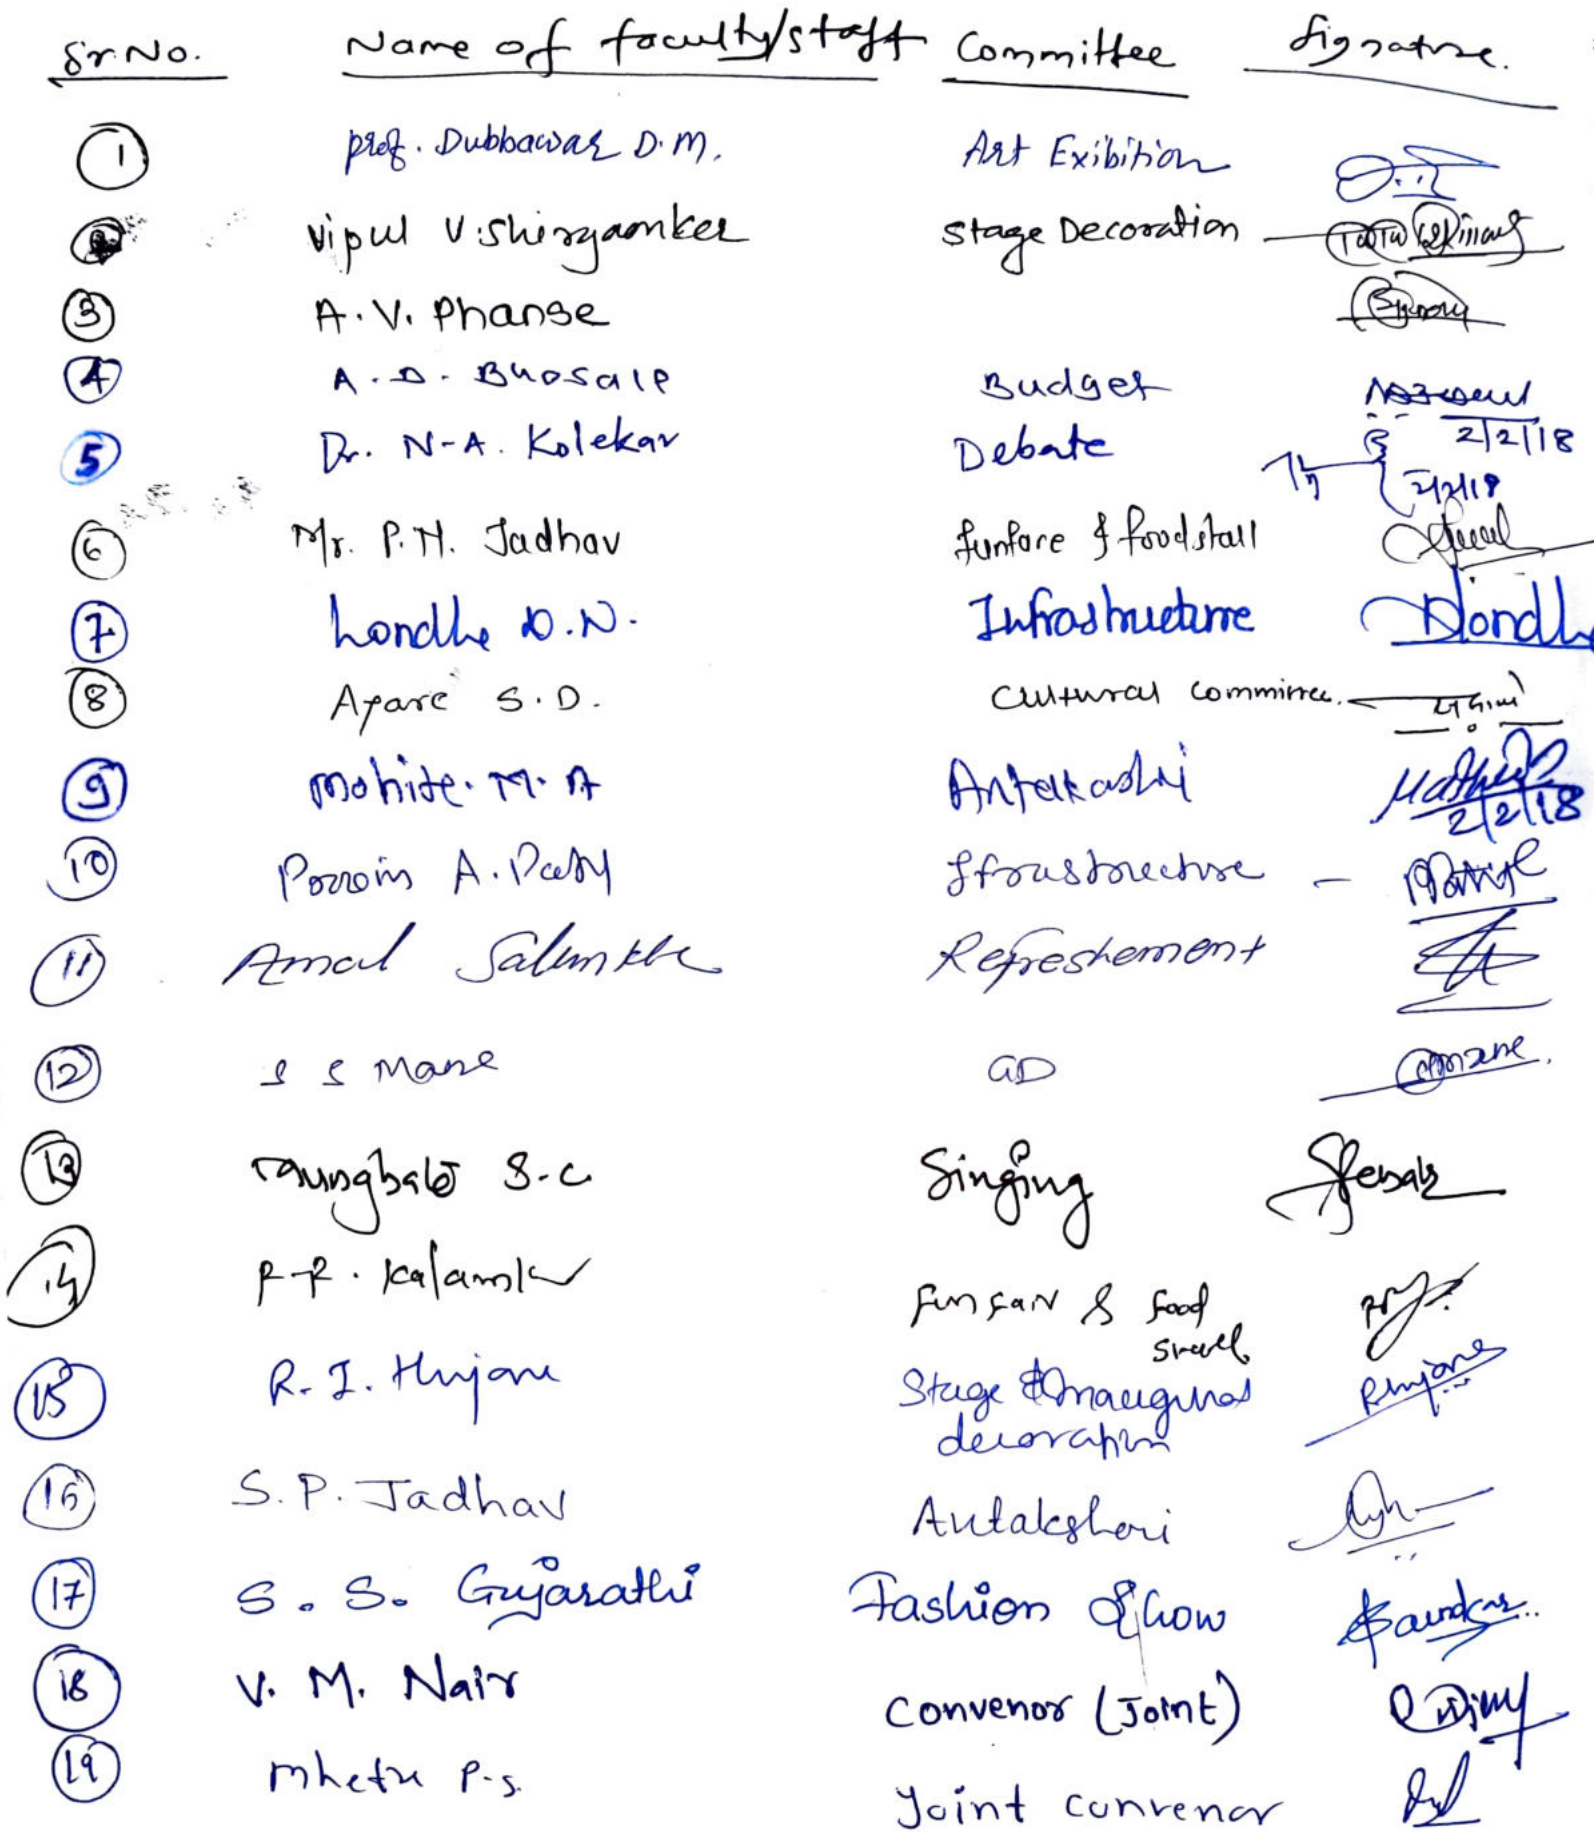 Sr.No. Name of faculty/staff Committee Signature.
1 Prof. Dubbawar D.M. Art Exibition
2 Vipul V. Shirgaonker Stage Decoration
3 A.V. Phanse
4 A.D. Bhosale Budget
2/2/18
5 Dr. N.A. Kolekar Debate
2/2/18
6 Mr. P.N. Jadhav funfare & foodstall
7 Londhe D.N. Infrastructure
8 Apare S.D. Cultural committee.
9 Mohite. M. A Antakashri
2/2/18
10 A.
11 Amol Salunkhe Refreshement
12 S S Mane GD
13 S.C. Singing
14 Fun fair & Food
15 R. I. Hujare Stage & Inaugural
decoration
16 S.P. Jadhav Antakshari
17 S. S. Gujarathi Fashion Show
18 V. M. Nair Convenor (Joint)
19 Mhetre P.S.
Joint convenor